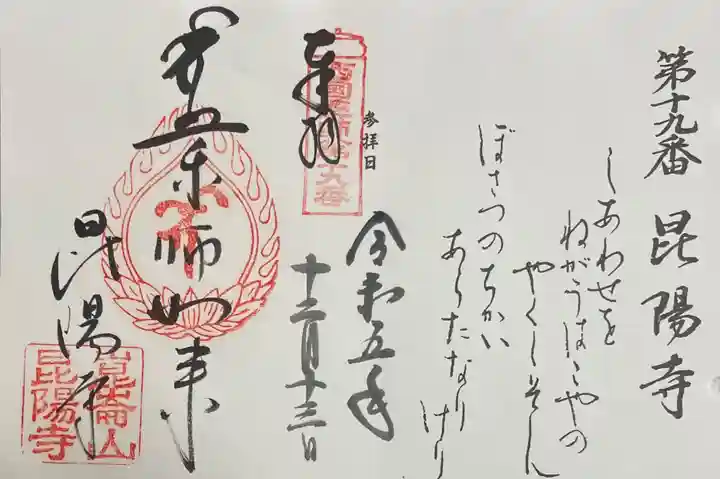 第十九番 昆陽寺
しあわせを
ねがうはこやの
やくしそん
ぼさつのちかい
あらたなりけり
参拝日
令和五年
十二月十三日
奉拝
薬師如来
昆陽寺
崑崙山
昆陽寺